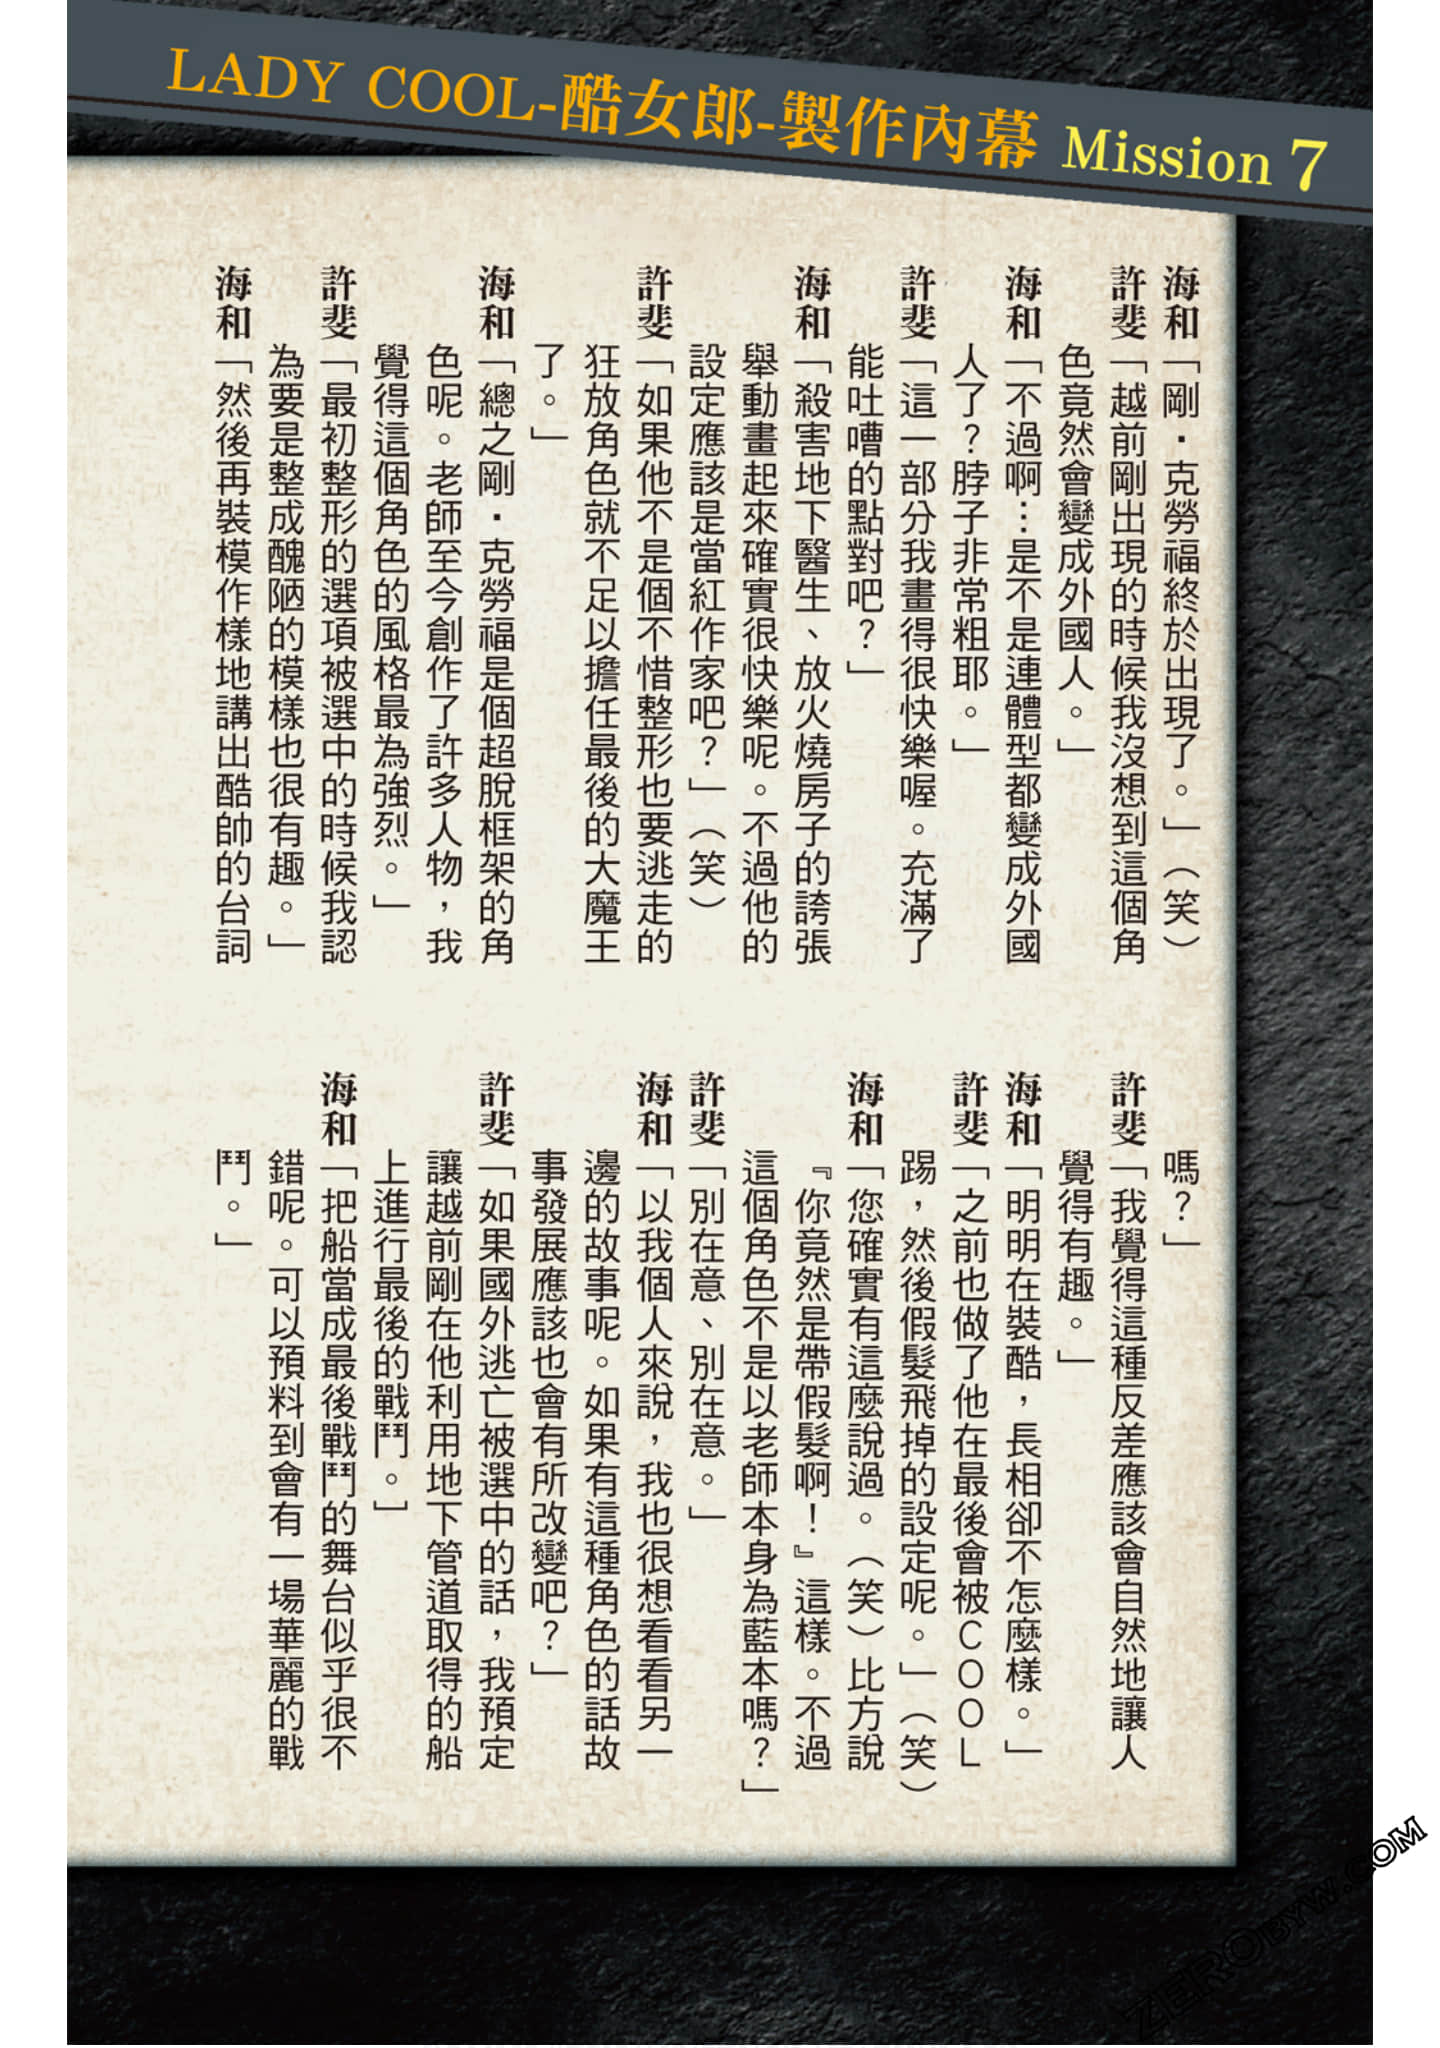 LADY COOL-酷女郎-製作內幕 Mission 7
海和「剛·克勞福終於出現了。」（笑）
許斐「越前剛出現的時候我沒想到這個角
色竟然會變成外國人。」
海和「不過啊…是不是連體型都變成外國
人了？脖子非常粗耶。」
許斐「這一部分我畫得很快樂喔。充滿了
能吐嘈的點對吧？」
海和「殺害地下醫生、放火燒房子的誇張
舉動畫起來確實很快樂呢。不過他的
設定應該是當紅作家吧？」（笑）
許斐「如果他不是個不惜整形也要逃走的
狂放角色就不足以擔任最後的大魔王
了。」
海和「總之剛·克勞福是個超脫框架的角
色呢。老師至今創作了許多人物，我
覺得這個角色的風格最為強烈。」
許斐「最初整形的選項被選中的時候我認
為要是整成醜陋的模樣也很有趣。」
海和「然後再裝模作樣地講出酷帥的台詞
嗎？」
許斐「我覺得這種反差應該會自然地讓人
覺得有趣。」
海和「明明在裝酷，長相卻不怎麼樣。」
許斐「之前也做了他在最後會被ＣＯＯＬ
踢，然後假髮飛掉的設定呢。」（笑）
海和「您確實有這麼說過。（笑）比方說
『你竟然是帶假髮啊！』這樣。不過
這個角色不是以老師本身為藍本嗎？」
許斐「別在意、別在意。」
海和「以我個人來說，我也很想看看另一
邊的故事呢。如果有這種角色的話故
事發展應該也會有所改變吧？」
許斐「如果國外逃亡被選中的話，我預定
讓越前剛在他利用地下管道取得的船
上進行最後的戰鬥。］
海和「把船當成最後戰鬥的舞台似乎很不
錯呢。可以預料到會有一場華麗的戰
鬥。」
ZEROBYW.COM